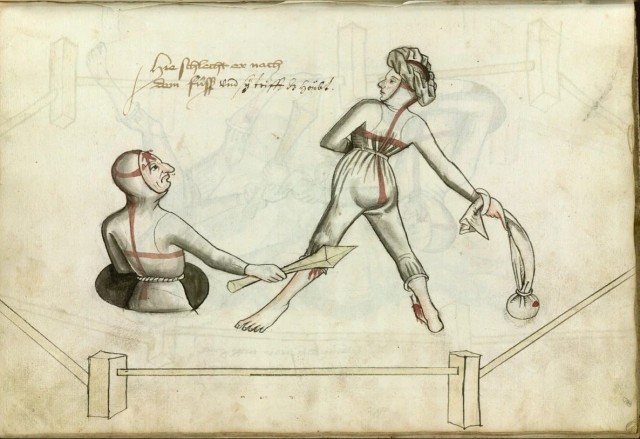 Hie schlecht er nach
dem fuſſ und trifft houbt.